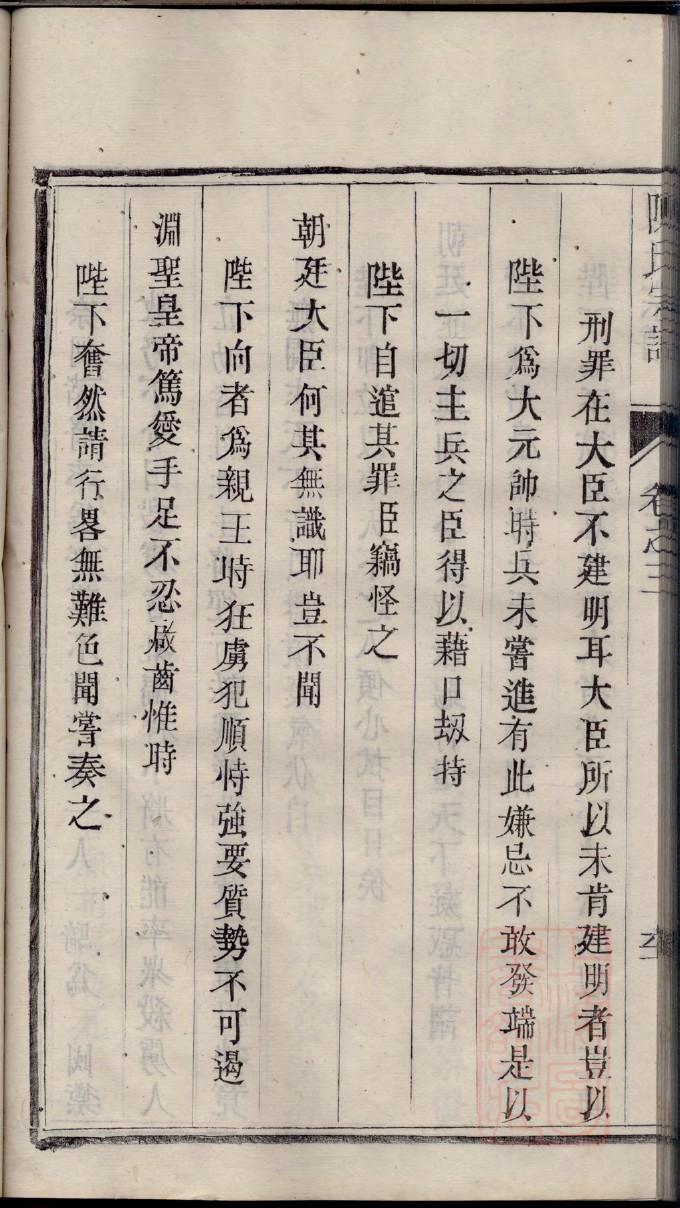 刑罪在大臣不建明耳大臣所以未肯建明者豈以
陛下爲大元帥時兵未嘗進有此嫌忌不敢發端是以
一切主兵之臣得以藉口刼持
陛下自逭其罪臣竊怪之
朝廷大臣何其無識耶豈不聞
陛下向者爲親王時狂虜犯順恃強要質勢不可遏
淵聖皇帝篤愛手足不忍啟齒惟時
陛下奮然請行畧無難色聞嘗奏之
卷之三